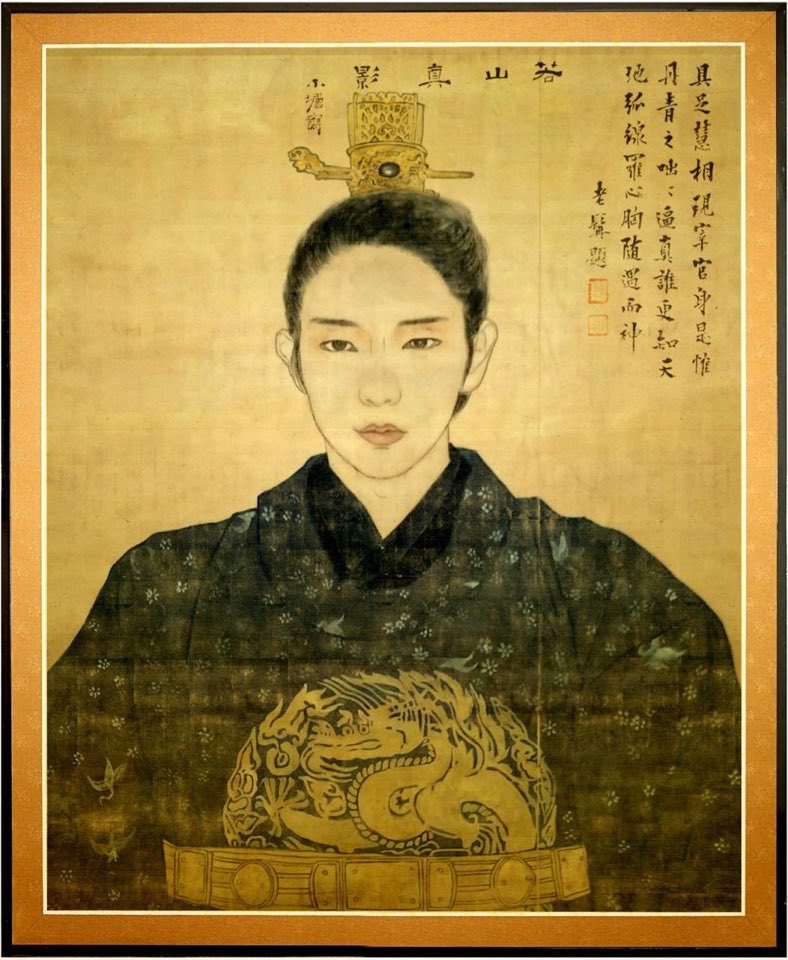 具足慧相現宰官身是惟
丹青之咄〻逼真誰更知夫
弧線羅心胸随遇而神
老髯題
若山真影
小塘